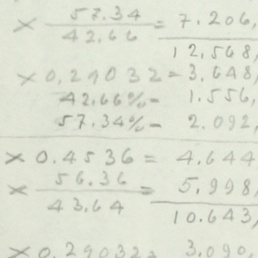 × 57.34 = 7.206,
42.66
12,568,
× 0,29032 = 3,648,
42,66% = 1.556,
57.34% = 2.092,
× 0.4536 = 4.644
× 56.36 = 5,998,
43,64
10.643,
× 0.29032 = 3,090,